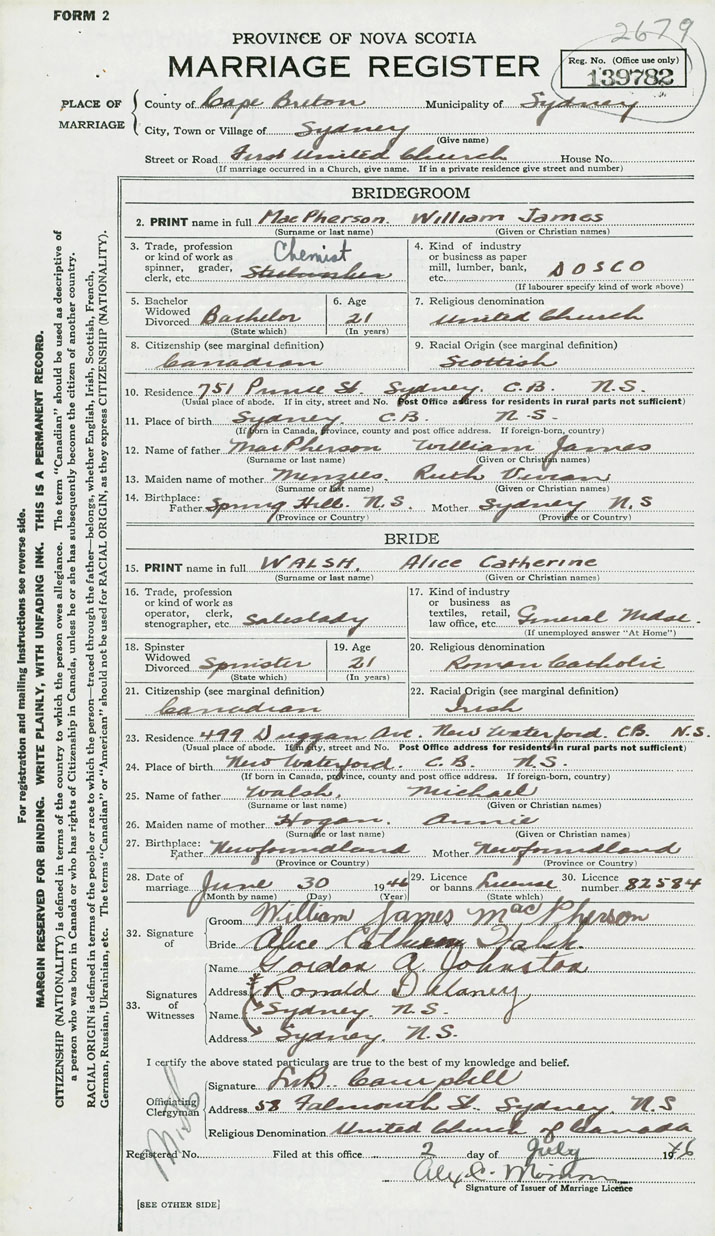 FORM 2
2679
PROVINCE OF NOVA SCOTIA
MARRIAGE REGISTER
Reg. No. (Office use only)
139782
PLACE OF MARRIAGE
County of Cape Breton Municipality of Sydney
City, Town or Village of Sydney
(Give name)
Street or Road First United Church House No.
(If marriage occurred in a Church, give name. If in a private residence give street and number)
BRIDEGROOM
2. PRINT name in full MacPherson. William James
(Surname or last name) (Given or Christian names)
3. Trade, profession or kind of work as spinner, grader, clerk, etc. Chemist
4. Kind of industry or business as paper mill, lumber, bank, etc. DOSCO
(If labourer specify kind of work above)
5. Bachelor Widowed Divorced Bachelor
(State which)
6. Age 21
(In years)
7. Religious denomination United Church
8. Citizenship (see marginal definition) Canadian
9. Racial Origin (see marginal definition) Scottish
10. Residence 751 Prince St. Sydney. C.B. N.S.
(Usual place of abode. If in city, street and No. Post Office address for residents in rural parts not sufficient)
11. Place of birth Sydney. C.B. N.S.
(If born in Canada, province, county and post office address. If foreign-born, country)
12. Name of father MacPherson William James
(Surname or last name) (Given or Christian names)
13. Maiden name of mother Menzies Ruth Vivian
(Surname or last name) (Given or Christian names)
14. Birthplace: Father Spring Hill. N.S. Mother Sydney N.S
(Province or Country) (Province or Country)
BRIDE
15. PRINT name in full WALSH. Alice Catherine
(Surname or last name) (Given or Christian names)
16. Trade, profession or kind of work as operator, clerk, stenographer, etc. Saleslady
17. Kind of industry or business as textiles, retail, law office, etc. General Mdse.
(If unemployed answer "At Home")
18. Spinster Widowed Divorced Spinster
(State which)
19. Age 21
(In years)
20. Religious denomination Roman Catholic
21. Citizenship (see marginal definition) Canadian
22. Racial Origin (see marginal definition) Irish
23. Residence 499 Duggan Ave. New Waterford. C.B. N.S.
(Usual place of abode. If in city, street and No. Post Office address for residents in rural parts not sufficient)
24. Place of birth New Waterford. C.B. N.S.
(If born in Canada, province, county and post office address. If foreign-born, country)
25. Name of father Walsh. Michael
(Surname or last name) (Given or Christian names)
26. Maiden name of mother Hogan. Annie
(Surname or last name) (Given or Christian names)
27. Birthplace: Father Newfoundland Mother Newfoundland
(Province or Country) (Province or Country)
28. Date of marriage June 30 1946
(Month by name) (Day) (Year)
29. Licence or banns License
(State which)
30. Licence number 82584
32. Signature of
Groom William James MacPherson
Bride Alice Catherine Walsh.
33. Signatures of Witnesses
Name Gordon A. Johnston
Address Ronald Delaney
Name Sydney. N.S.
Address Sydney. N.S.
I certify the above stated particulars are true to the best of my knowledge and belief.
Officiating Clergyman
Signature Campbell
Address 58 Falmouth St. Sydney. N.S
Religious Denomination United Church of Canada
Registered No. Filed at this office 2 day of July 1946
Signature of Issuer of Marriage Licence
[SEE OTHER SIDE]
For registration and mailing instructions see reverse side.
MARGIN RESERVED FOR BINDING. WRITE PLAINLY, WITH UNFADING INK. THIS IS A PERMANENT RECORD.
CITIZENSHIP (NATIONALITY) is defined in terms of the country to which the person owes allegiance. The term "Canadian" should be used as descriptive of
a person who was born in Canada or who has rights of Citizenship in Canada, unless he or she has subsequently become the citizen of another country.
RACIAL ORIGIN is defined in terms of the people or race to which the person—traced through the father—belongs, whether English, Irish, Scottish, French,
German, Russian, Ukrainian, etc. The terms "Canadian" or "American" should not be used for RACIAL ORIGIN, as they express CITIZENSHIP (NATIONALITY).